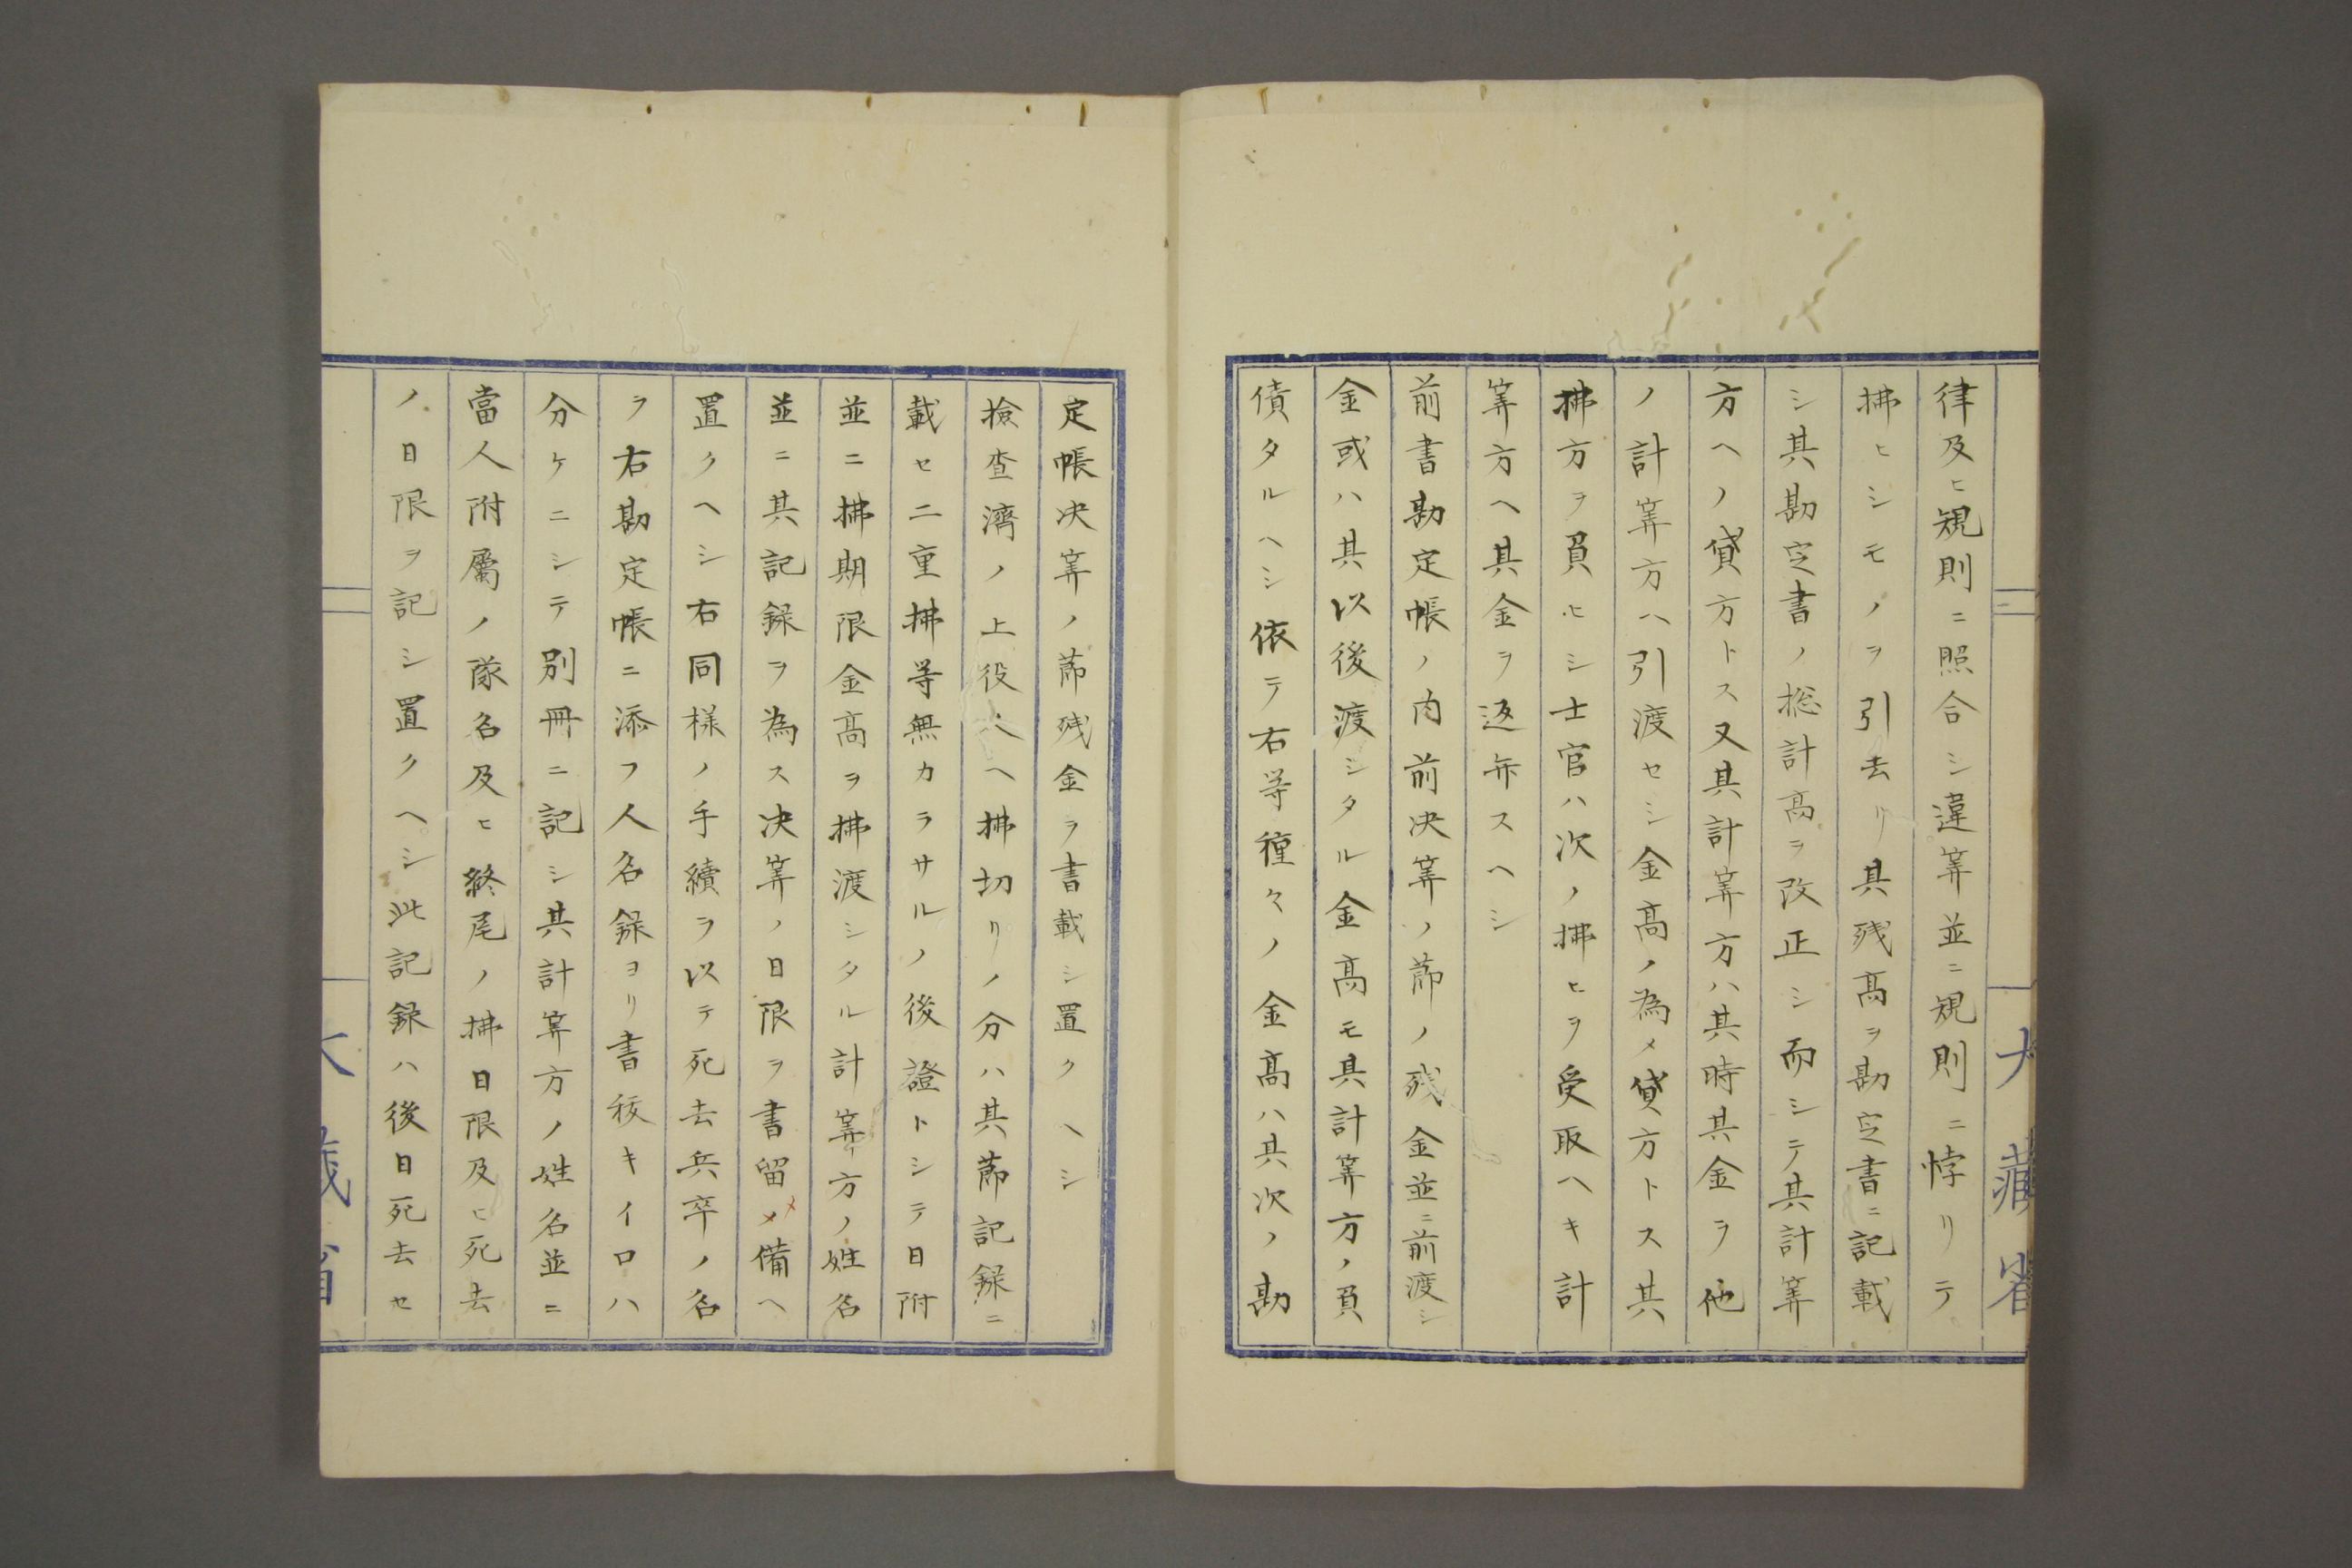 律及ヒ規則ニ照合シ違筭並ニ規則ニ悖リテ
拂ヒシモノヲ引去リ其残髙ヲ勘定書ニ記載
シ其勘定書ノ総計髙ヲ改正シ而シテ其計筭
方ヘノ貸方トス又其計筭方ハ其時其金ヲ他
ノ計筭方ヘ引渡セシ金髙ノ為メ貸方トス其
拂方ヲ負ヒシ士官ハ次ノ拂ヒヲ受取ヘキ計
筭方ヘ其金ヲ返弁スヘシ
前書勘定帳ノ内前决筭ノ節ノ残金並ニ前渡シ
金或ハ其以後渡シタル金髙モ其計筭方ノ負
債タルヘシ依テ右等種々ノ金髙ハ其次ノ勘
大藏省
定帳决筭ノ節残金ヲ書載シ置クヘシ
撿査濟ノ上役々ヘ拂切リノ分ハ其節記録ニ
載セ二重拂等無カラサルノ後證トシテ日附
並ニ拂期限金髙ヲ拂渡シタル計筭方ノ姓名
並ニ其記録ヲ為ス决筭ノ日限ヲ書留メ備ヘ
置クヘシ右同様ノ手續ヲ以テ死去兵卒ノ名
ヲ右勘定帳ニ添フ人名録ヨリ書抜キイロハ
分ケニシテ別冊ニ記シ其計筭方ノ姓名並ニ
當人附屬ノ隊名及ヒ終尾ノ拂日限及ヒ死去
ノ日限ヲ記シ置クヘシ此記録ハ後日死去セ
大藏省